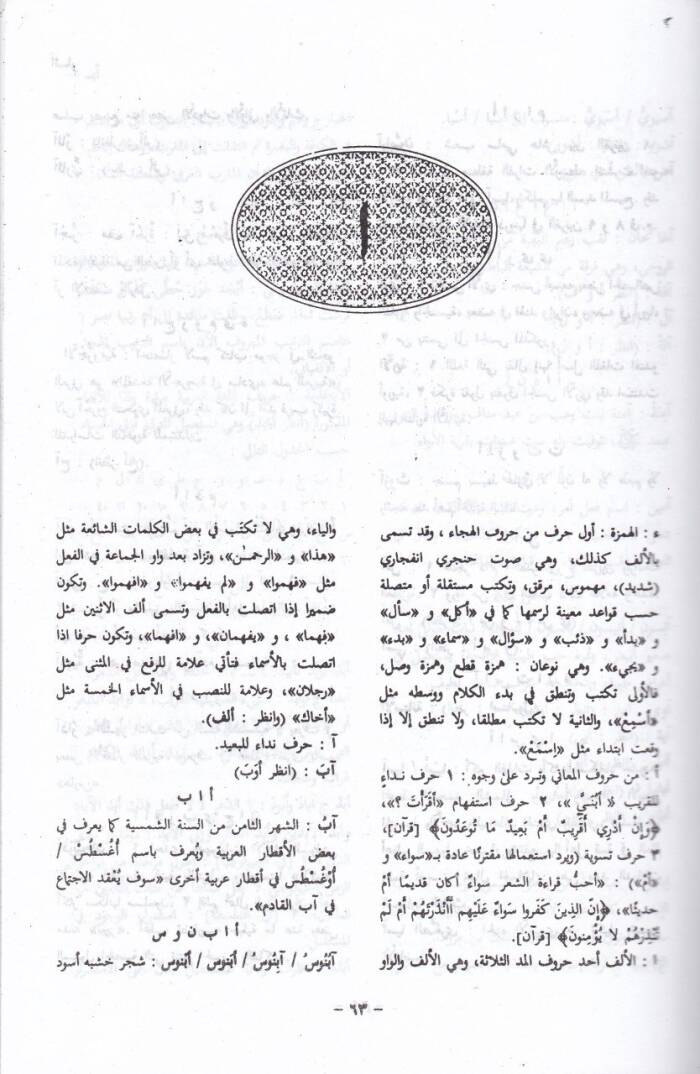 ا
ء : الهمزة : أول حرف من حروف الهجاء ، وقد تسمى
بالألف كذلك، وهي صوت حنجري انفجاري
(شديد)، مهموس، مرقق، وتكتب مستقلة أو متصلة
حسب قواعد معينة لرسمها كما في «أكل» و «سأل»
و «بدأ» و «ذئب» و «سؤال» و «سماء» و «بدء»
و «يجيء». وهي نوعان : همزة قطع وهمزة وصل،
فالأولى تكتب وتنطق في بدء الكلام ووسطه مثل
«أسمع»، والثانية لا تكتب مطلقا، ولا تنطق إلا إذا
وقعت ابتداء مثل «اِسْمَعْ».
أ : من حروف المعاني وترد على وجوه : ١ حرف نداء
للقريب « أَبُنَيَّ »، ٢ حرف استفهام «أقرَأتَ ؟»،
﴿وَإنْ أَدْرِي أَقَرِيبٌ أَمْ بَعِيدٌ مَا تُوعَدُونَ﴾ [قرآن]،
٣ حرف تسوية (ويرد استعمالها مقترنًا عادة بـ«سواء» و
«أم») : «أحبُّ قراءة الشعر سواءٌ أكان قديمًا أمْ
حديثًا»، ﴿إنَّ الذينَ كفَروا سَواءٌ عَلَيهِم أأنْذَرْتَهُمْ أمْ لَمْ
تُنذِرْهُمْ لا يُؤْمِنونَ﴾ [قرآن].
ا : الألف أحد حروف المد الثلاثة، وهي الألف والواو
والياء، وهي لا تكتَب في بعض الكلمات الشائعة مثل
«هذا» و «الرحمٰن»، وتزاد بعد واو الجماعة في الفعل
مثل «فهموا» و «لم يفهموا» و «افهموا». وتكون
ضميرا إذا اتصلت بالفعل وتسمى ألف الاثنين مثل
«فهما» ، و «يفهمان»، و «افهما»، وتكون حرفا اذا
اتصلت بالأسماء فتأتي علامة للرفع في المثنى مثل
«رجلان»، وعلامة للنصب في الأسماء الخمسة مثل
«أخاك» (وانظر : ألف).
آ : حرف نداء للبعيد.
آبَ : (انظر أوَبَ)
أ ا ب
آبُ : الشهر الثامن من السنة الشمسية كما يعرف في
بعض الأقطار العربية ويُعرف باسم أُغُسْطُسْ /
أُوغُسْطُس في أقطار عربية أخرى «سوف يُعْقد الاجتماع
في آب القادم».
أ ا ب ن و س
آبَنُوسٌ / آبِنُوسٌ / أبَنوس / أبْنوس : شجر خشبه أسود
- ٦٣ -